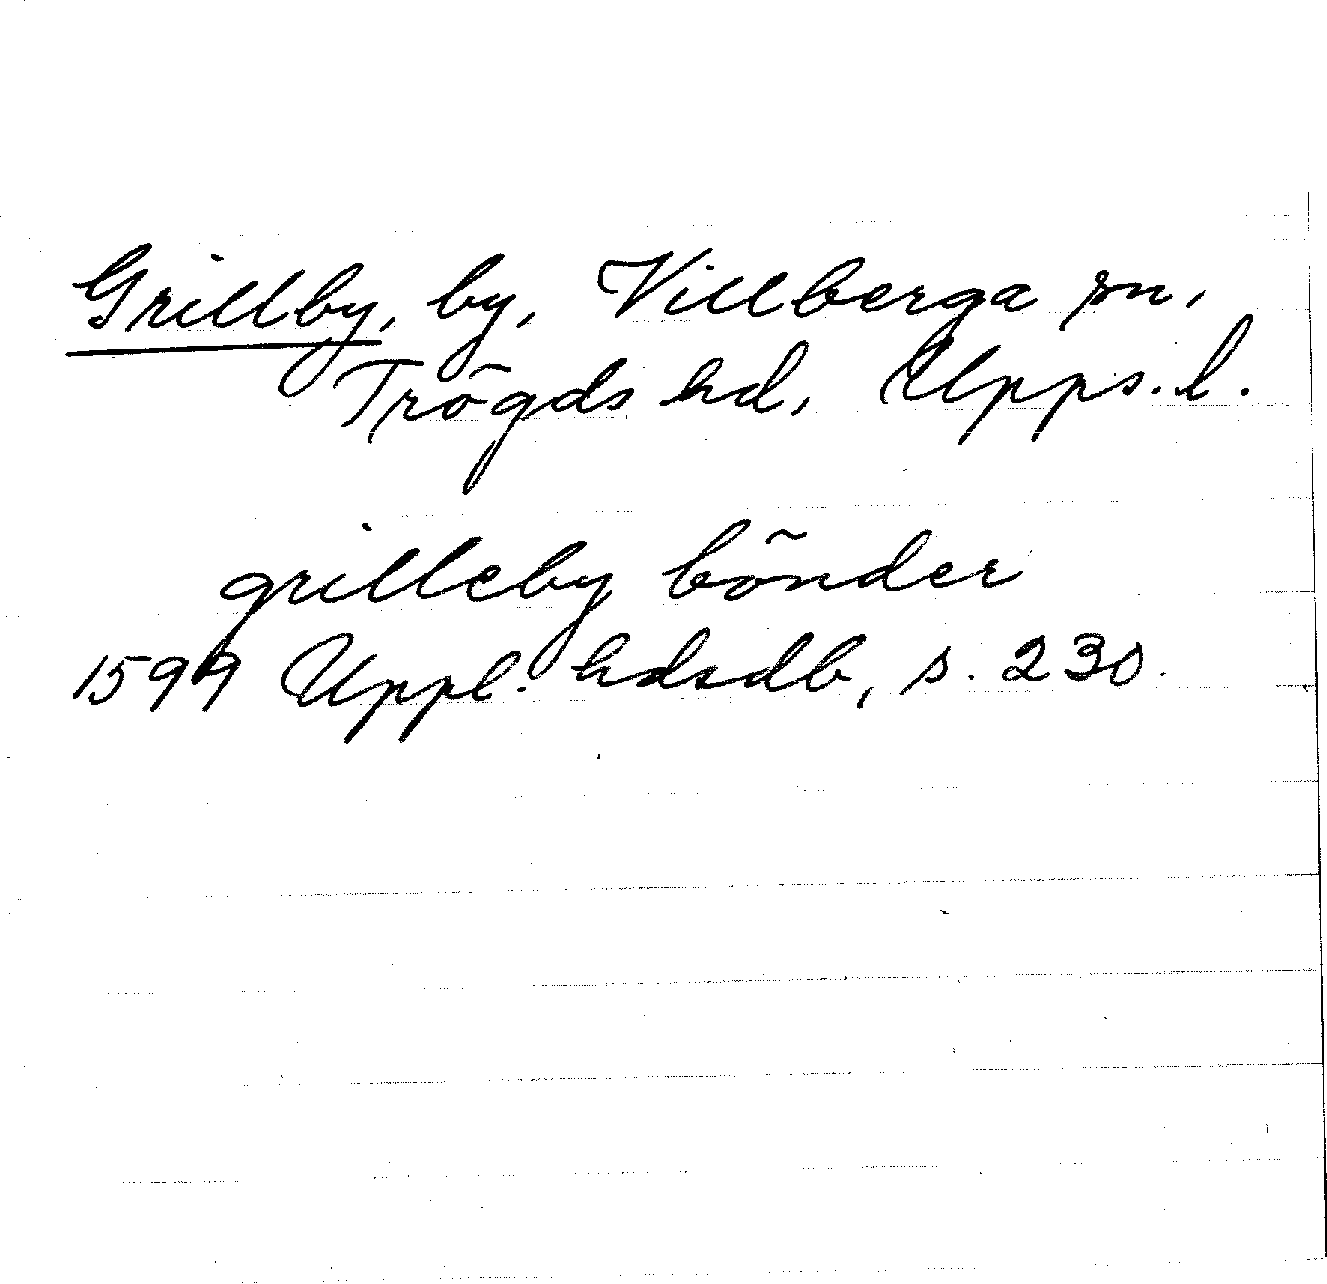 Grillby, by, Villberga sn,
Trögds hd, Upps. l.
grilleby bönder
1599 Uppl. hdsdb, s. 230.